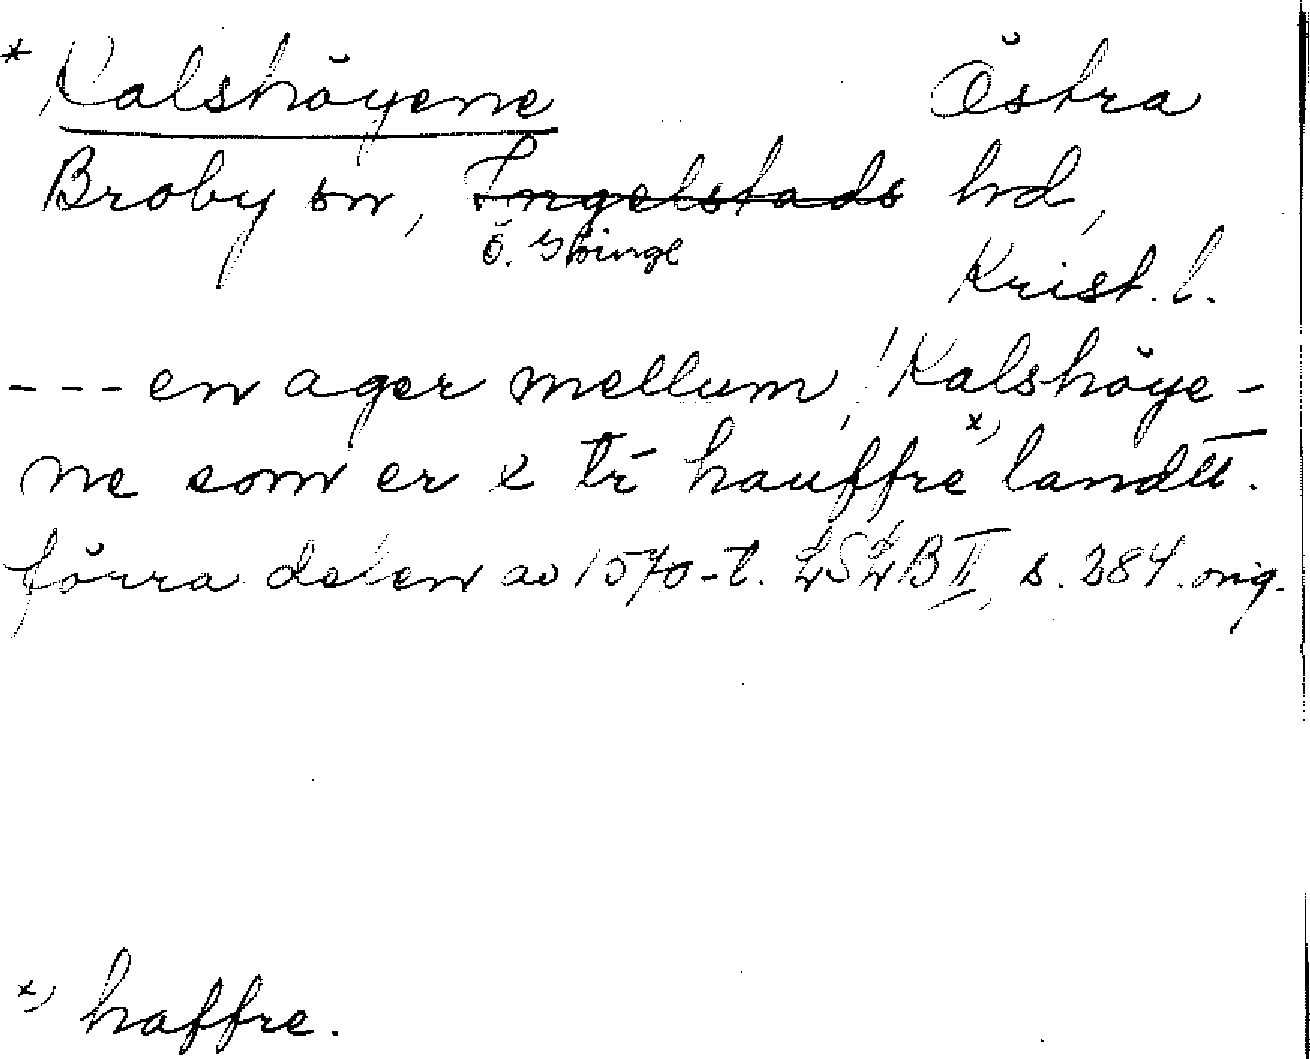 * Kalshöyene Östra
Broby sn, Ingelstads hd,
Ö. Göinge
Krist. l.
--- en ager mellum, ! Kalshöye-
ne som er x tr hauffre x) landtt.
förra delen av 1570-t. LSLB II, s. 384. orig.
x) haffre.